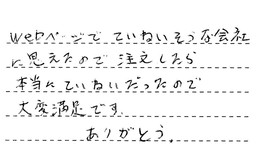 webページで ていねいそうな会社
に思えたので 注文したら
本当にていねいだったので
大変満足です.
ありがとう。